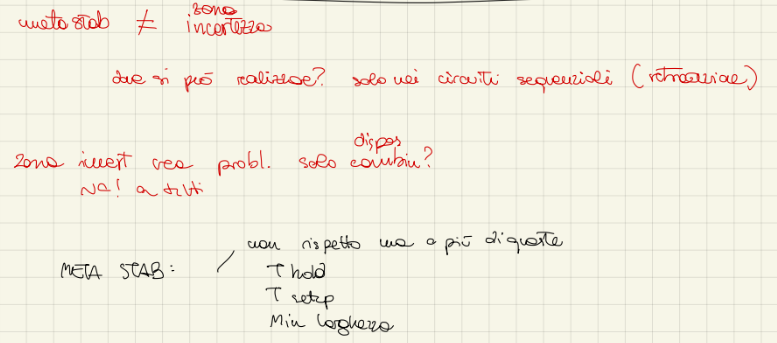 metastab ≠ zona incertezza
dove si può realizzare? solo nei circuiti sequenziali (retroazione)
zona incert crea probl. solo dispos combin?
NO! a tutti
META STAB: / non rispetto una o più di queste
T hold
T setup
Min larghezza